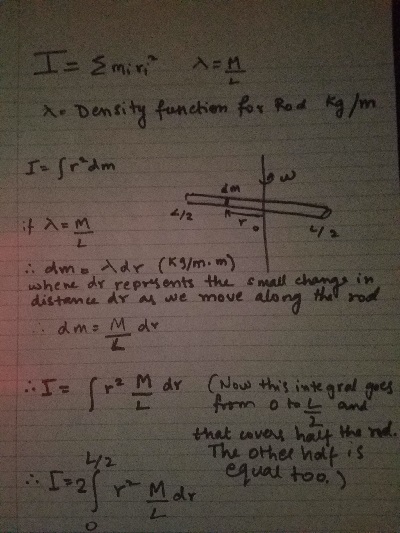 I = Σ mᵢrᵢ² λ = M/L
λ = Density function for Rod Kg/m
I = ∫r²dm
dm ω
L/2 r 0 L/2
if λ = M/L
∴ dm = λdr (Kg/m.m)
where dr represents the small change in
distance dr as we move along the rod
∴ dm = M/L dr
∴ I = ∫ r² M/L dr (Now this integral goes
from 0 to L/2 and
that covers half the rod.
The other half is
equal too.)
∴ I = 2∫₀^(L/2) r² M/L dr